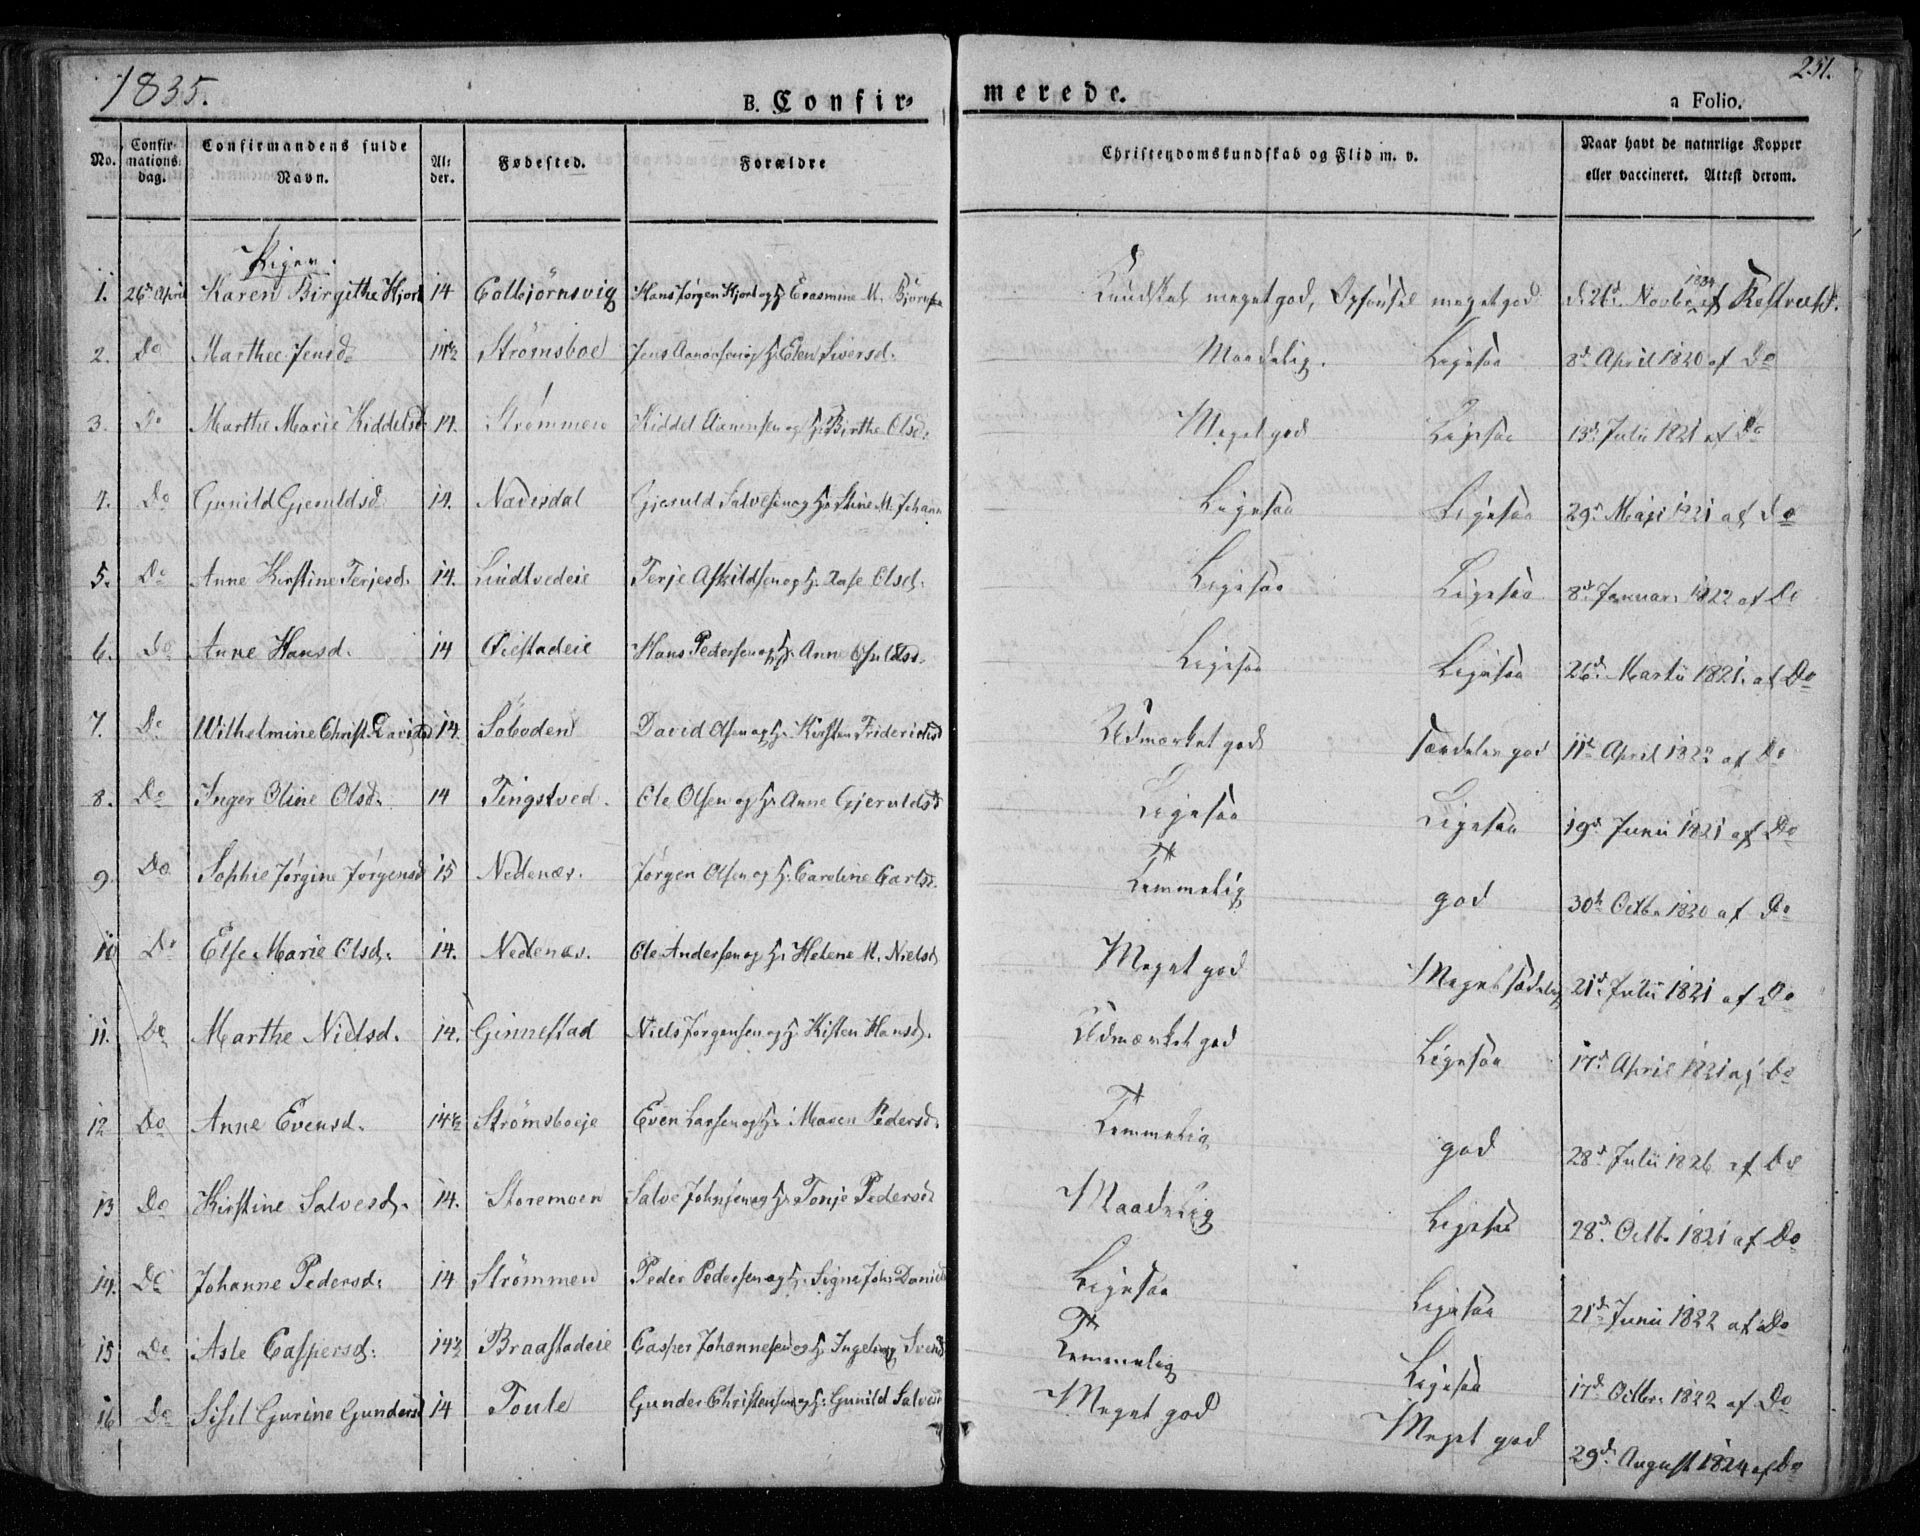 1835.
B. Confirmerede.
251.
a Folio.
No. Confirmations dag. Confirmandens fulde Navn. Alder. Fødested. Forældre Christendomskundskab og Flid m. v. Naar havt de naturlige Kopper eller vaccineret. Attest derom.
Piger.
1. 26de April Karen Birgithe Hjort 14 Colbjörnsvig Hans Jørgen Hjort og H. Erasmine M. Bjørnsen Kundskab meget god, Opførsel meget god d. 26d. Novbr. 1834 af
2. Do Marthe Jensd. 14½ Strømsboe Jens Aanonsen og H. Elen Siversd. Maadelig. Ligesaa 8d. April 1820 af Do
3. Do Marthe Marie Kiddelsd. 14. Strømmen Kiddel Aanensen og H. Birthe Olsd. Meget god Ligesaa 13d. Julii 1821 af Do
4. Do Gunild Gjeruldsd. 14. Nædesdal Gjeruld Salvesen og H. Stine M. Johann Ligesaa Ligesaa 29d. Maji 1821 af Do
5. Do Anne Kirstine Terjesd. 14. Lindtvedeie Terje Askildsen og H. Aase Olsd. Ligesaa Ligesaa 8d. Januar 1822 af Do
6. Do Anne Hansd. 14 Øiestadeie Hans Pedersen og H. Anne Ligesaa Ligesaa 26d. Martii 1821. af Do
7. Do Wilhelmine Christ. Davidsd 14. Søboden David Olsen og H. Kirsten Friderichsd Udmærket god Særdeles god 11te April 1822 af Do
8. Do Inger Oline Olsd. 14 Tingstved. Ole Olsen og H. Anne Gjeruldsd Ligesaa Ligesaa 19d. Junii 1821 af Do
9. Do Sophie Jørgine Jørgensd 15 Nedenæs. Jørgen Olsen og H. Caroline Carlsd. Temmelig god 30te Octb. 1820 af Do
10 Do Else Marie Olsd. 14. Nedenæs. Ole Andersen og H. Helene M. Nielsd Meget god Meget sædelig 21d. Julii 1821 af Do
11. Do Marthe Nielsd. 14. Ginnestad Niels Jørgensen og H. Kisten Hansd. Udmærket god Ligesaa 17d. April 1821 af Do
12 Do Anne Evensd. 14½ Strömsboeje Even Larsen og H. Maren Pedersd. Temmelig god 28d. Julii 1826 af Do
13 Do Kirstine Salvesd. 14. Storemoen Salve Johnsen og H. Tonje Pedersd Maadelig Ligesaa 28d. Octb. 1821 af Do
14. Do Johanne Pedersd. 14 Strömmen Peder Pedersen og H. Signe Joh. Daniels Ligesaa Ligesaa 21d. Junii 1822 af Do
15 Do Asle Caspersd. 14½ Braastadeie Casper Johannesen og H. Ingeborg Svend Temmelig Ligesaa 17d. Octbr. 1822 af Do
16 Do Sisil Gurine Gundersd 14 Toule Gunder Christensen og H. Gunild Salvesd Meget god Meget god 29d. August 1824 af Do